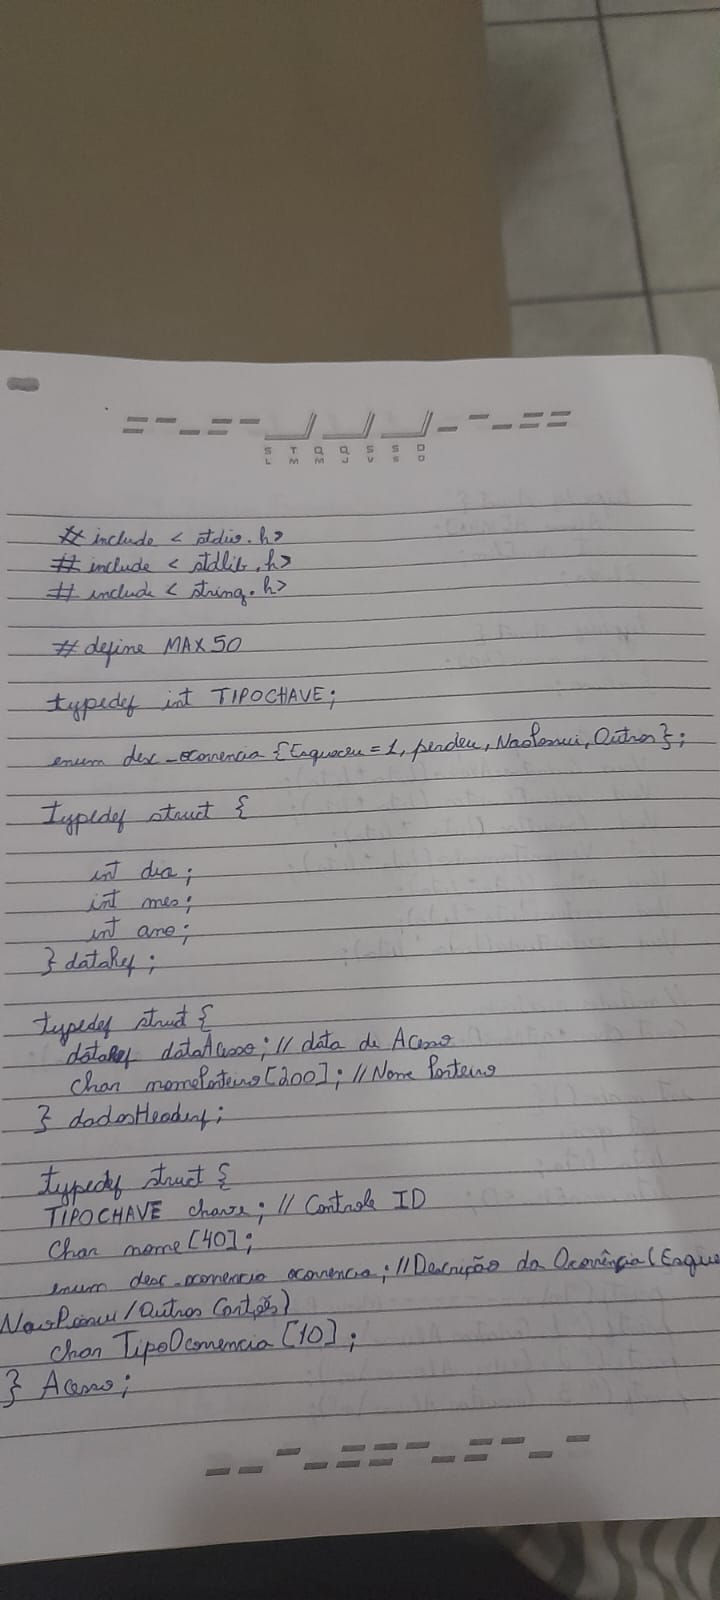 S T Q Q S S D
L M M J V S D
#include < stdio.h>
# include < stdlib.h>
# include < string.h>
# define MAX 50
typedef int TIPOCHAVE;
enum desc_ocorrencia {Esqueceu = 1, perdeu, NaoPossui, Outros};
typedef struct {
int dia;
int mes;
int ano;
} dataRef;
typedef struct {
dataRef dataAcesso; // data de Acesso
char nomePorteiro[200]; // Nome Porteiro
} dadosHeader;
typedef struct {
TIPOCHAVE chave; // Controle ID
Char nome [40];
enum desc_ocorrencia ocorrencia; // Descrição da Ocorrência (Esque
NaoPossui / Outros Cartões)
char TipoOcorrencia [10];
} Acesso;